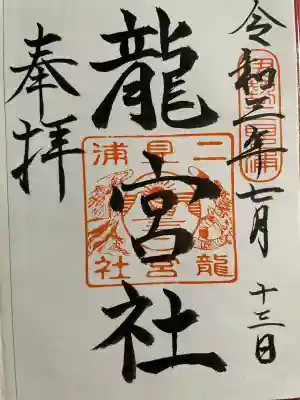 令和三年七月十三日
龍宮社
二見浦
龍宮社
奉拝